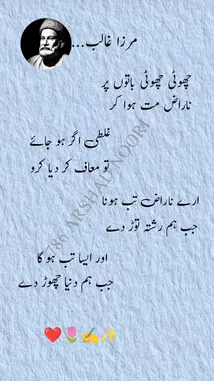 مرزا غالب...
چھوٹی چھوٹی باتوں پر
ناراض مت ہوا کر
غلطی اگر ہو جائے
تو معاف کر دیا کرو
ارے ناراض تب ہونا
جب ہم رشتہ توڑ دے
اور ایسا تب ہو گا
جب ہم دنیا چھوڑ دے
786 ARSHAD NOORI